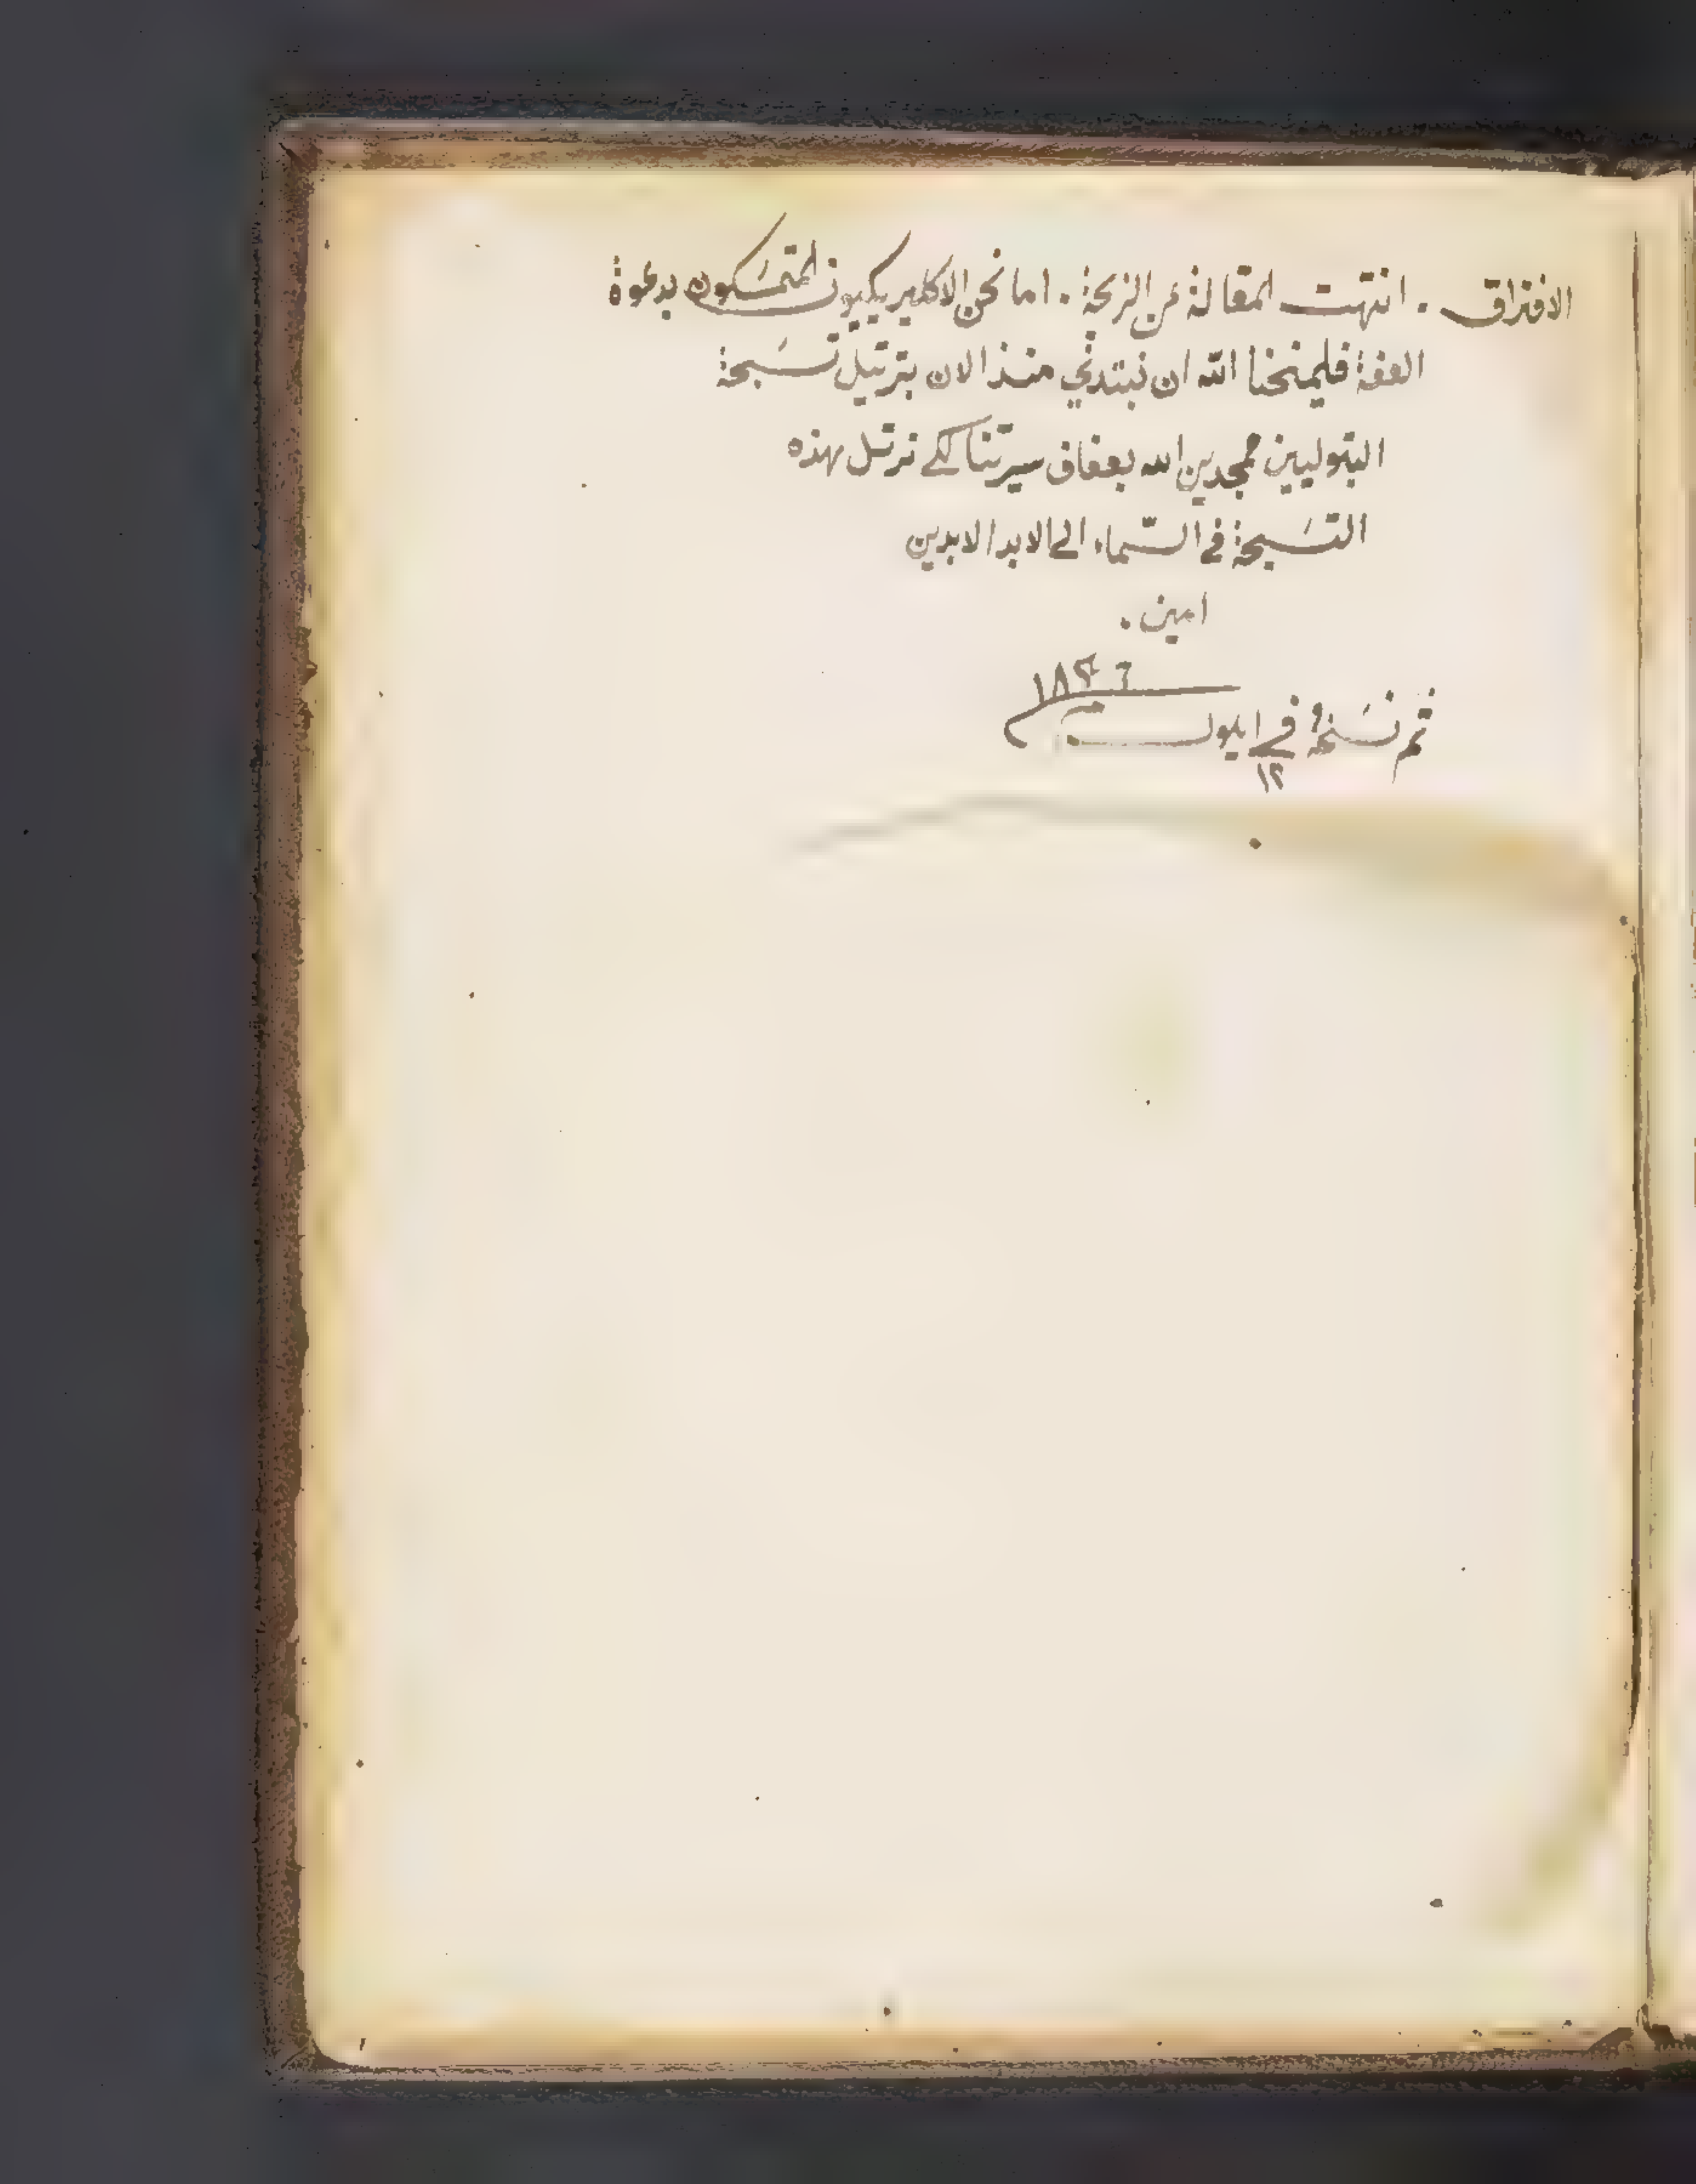 الافتراق . انتهت المقالة عن الزيجة . اما نحن الاكليريكيون المتمسكون بدعوة
العفة فليمنحنا الله ان نبتدئ منذ الان بترتيل تسبحة
البتوليين ممجدين الله بعفاف سيرتنا لكي نرتل بهذه
التسبحة في السماء الى الابد الابدين
امين .
تم نسخهُ في ايلول
١٢